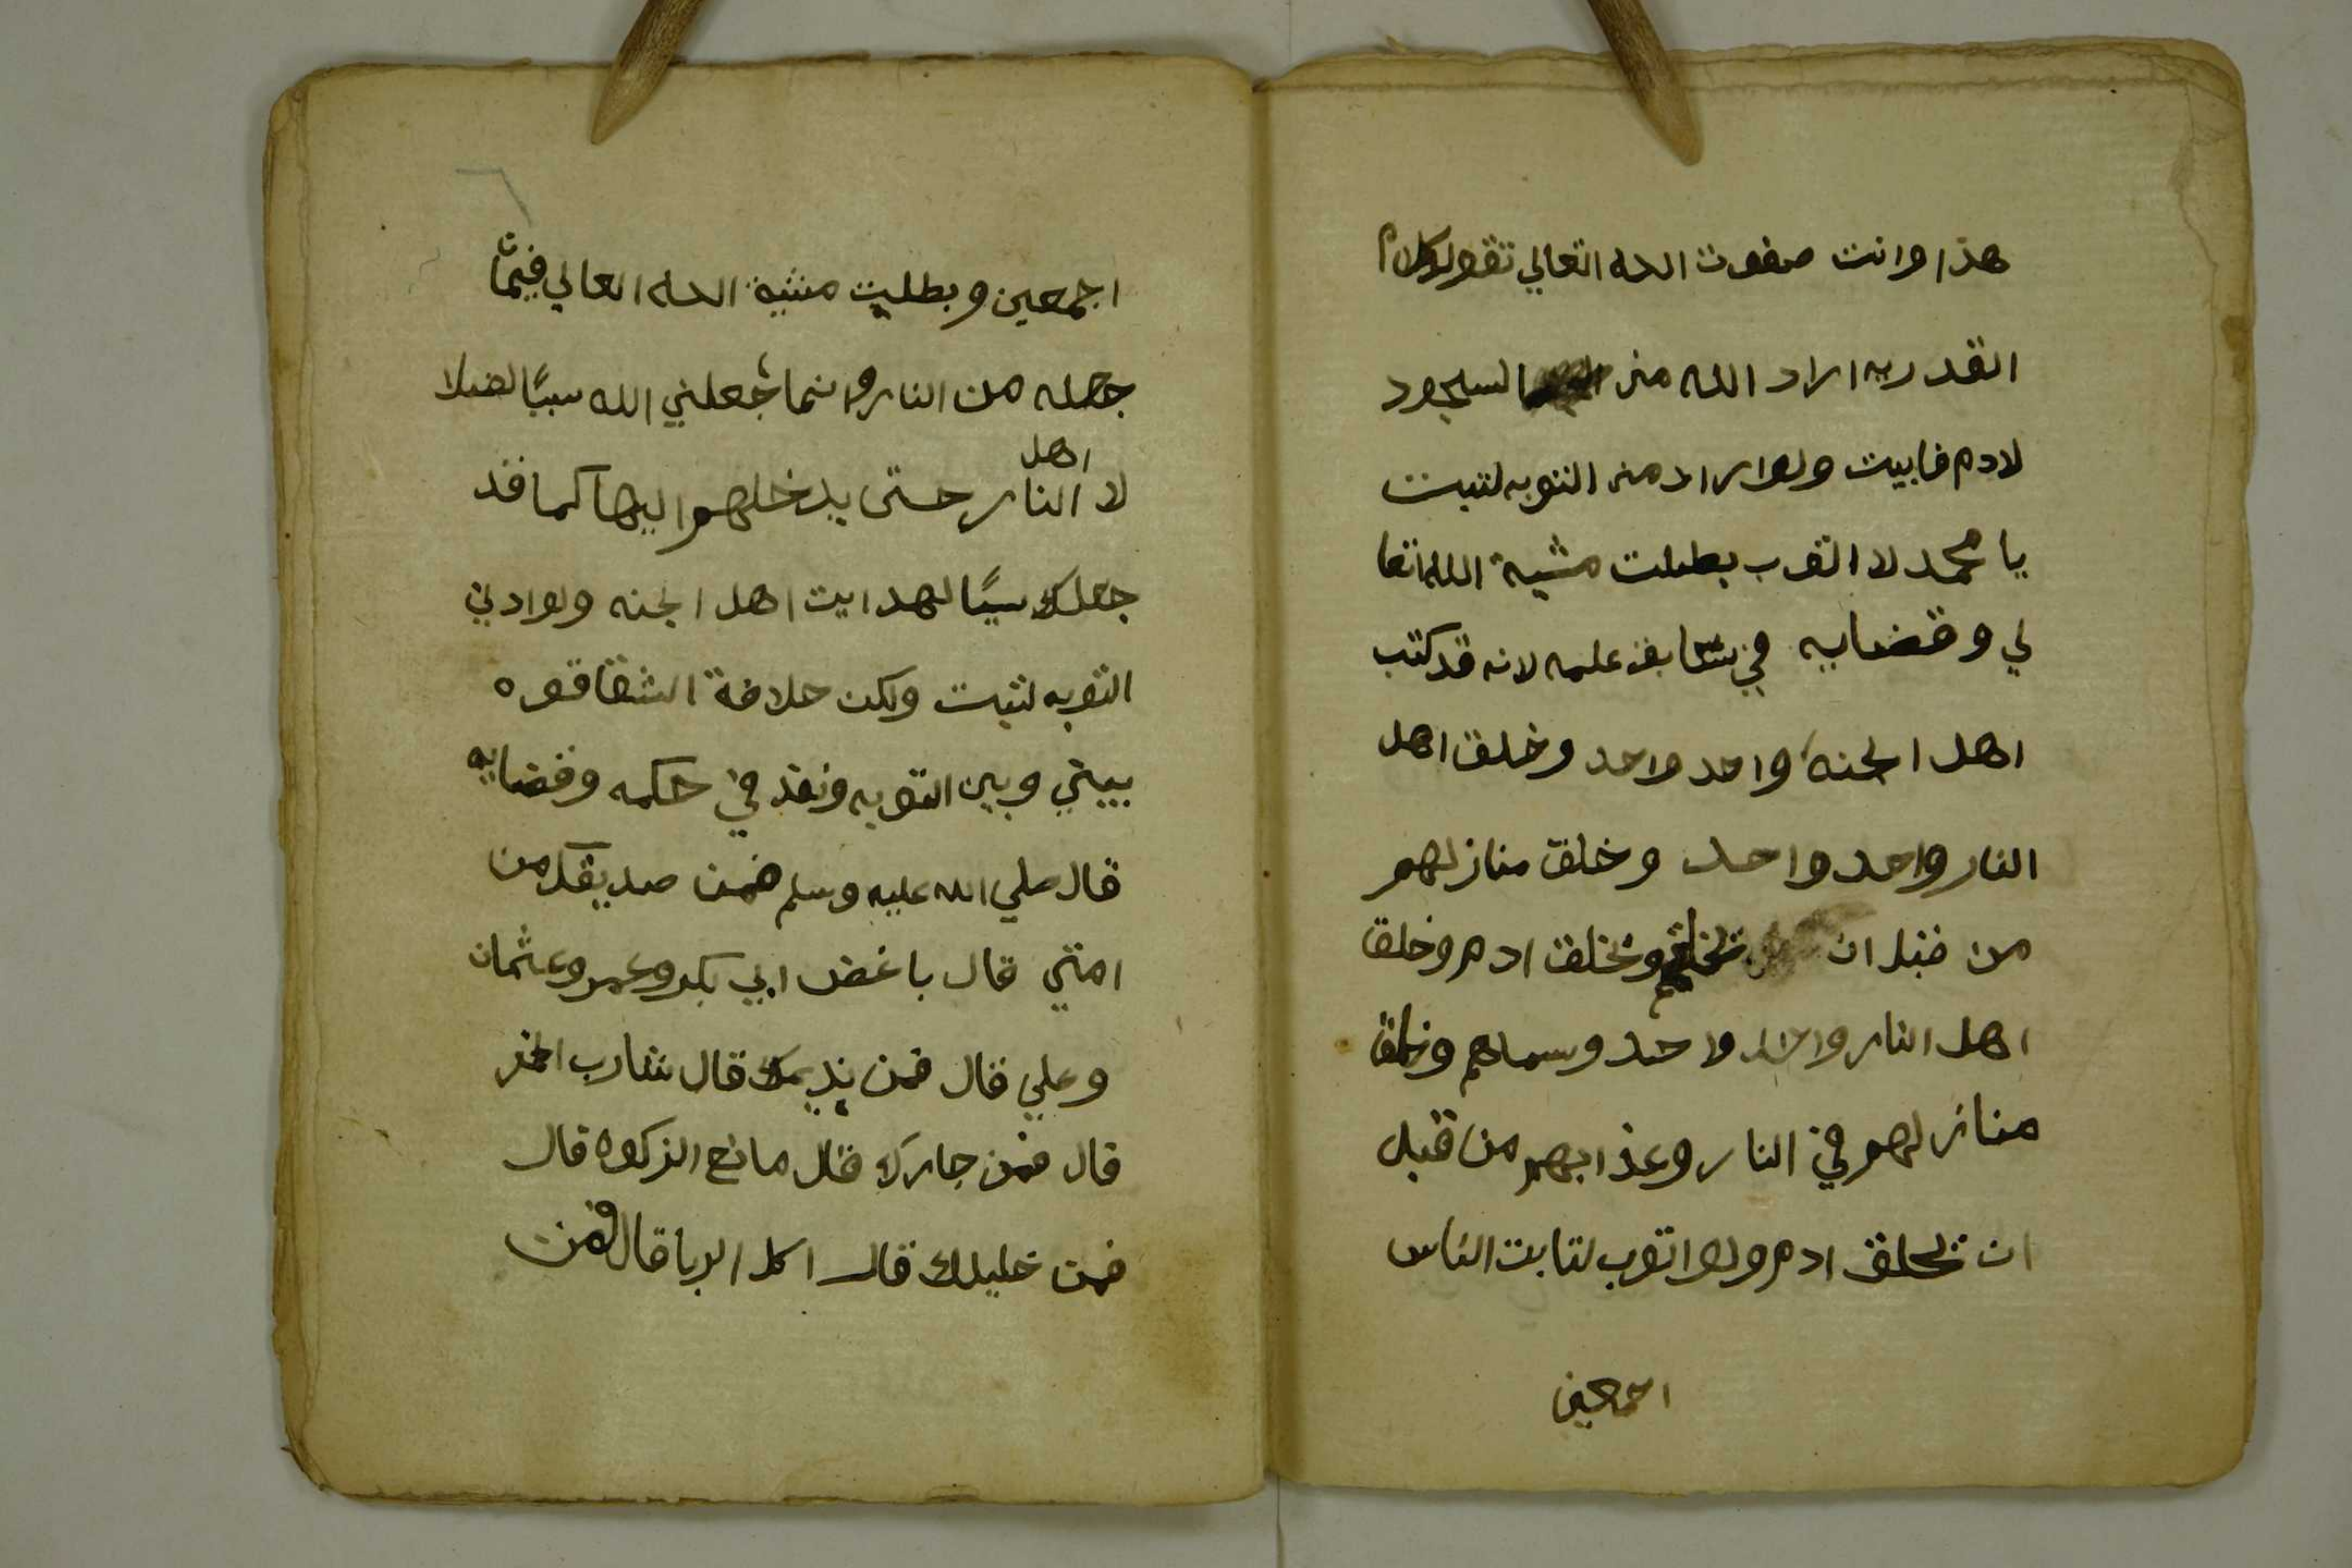 هذا وانت صفوت الله التعالي تقول كلام
القدريه اراد الله مني السجود
لادم فابيت ولو اراد مني التوبه لتبت
يا محمد لا اتوب بطلت مشية الله تعا
لي وقضايه في سابق علمه لانه قد كتب
اهل الجنة واحد واحد وخلق اهل
النار واحد واحد وخلق منازلهم
من قبل ان وتخلق ادم وخلق
اهل النار واحد واحد وسماهم وخلق
منازلهم في النار وعذابهم من قبل
ان تخلق ادم ولو اتوب لتابت الناس
اجمعين
اجمعين وبطليت مشية الله العالي فيمن
جعله من النار وانما جعلني الله سببًا لضلا
لا اهل النار حتى يدخلهم اليها كما قد
جعلك سببًا لهدايت اهل الجنه ولو ادني
التوبه لتبت ولكن حلافة الشقاقوه
بيني وبين التوبه ونفذ في حكمه وقضايه
قال صلي الله عليه وسلم فمن صديقك من
امتي قال باغض ابي بكر وعمر وعثمان
وعلي قال فمن نديمك قال شارب الخمر
قال فمن جارك قال مانع الزكوه قال
فمن خليلك قال اكل الربا قال فمن